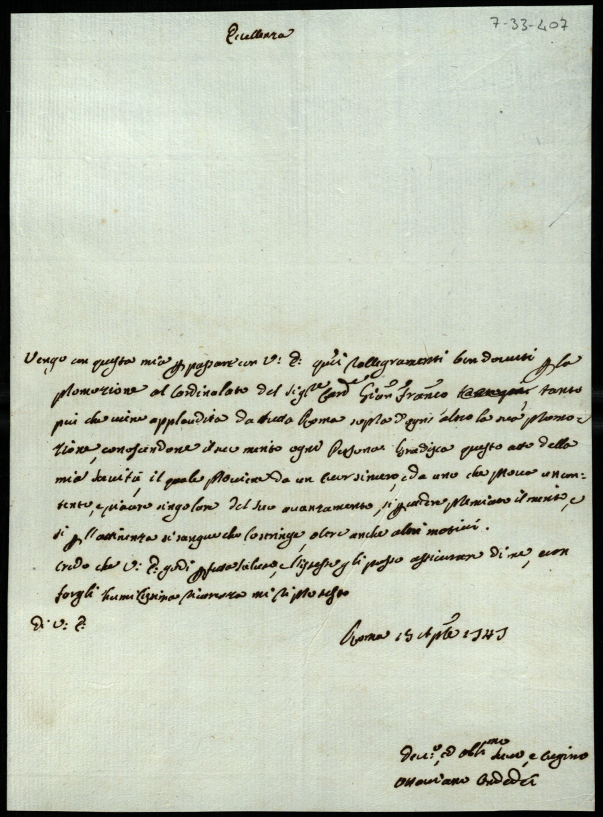 7-33-407
Eccellenza
Vengo con questa mia p passare con V: E: q.sti rallegramenti ben dovuti p la
Promozione al Cardinalato del Sig.re Card.e Gian Franco tanto
più che viene applaudita da tutta Roma sopra d'ogni altro la sua Promo-
zione, conoscendone il suo merito ogni Persona. Gradisca questo atto della
mia servitù, il quale Proviene da un cuor sincero, e da uno che prova un con-
tento, e piacere singolare del suo avanzamento, si p vedere Premiato il merito, e
si p l'attinenza di sangue che lo stringe, oltre anche altri motivi.
Credo che V: E: godi p fetta salute, e l'istesso gli posso assicurare di me, e con
fargli humilissima riverenza mi riprotesto
Di V: E:
Roma 15 Aple 1
Dev.o, ed Obl.mo Servo, e Cugino
Ottaviano